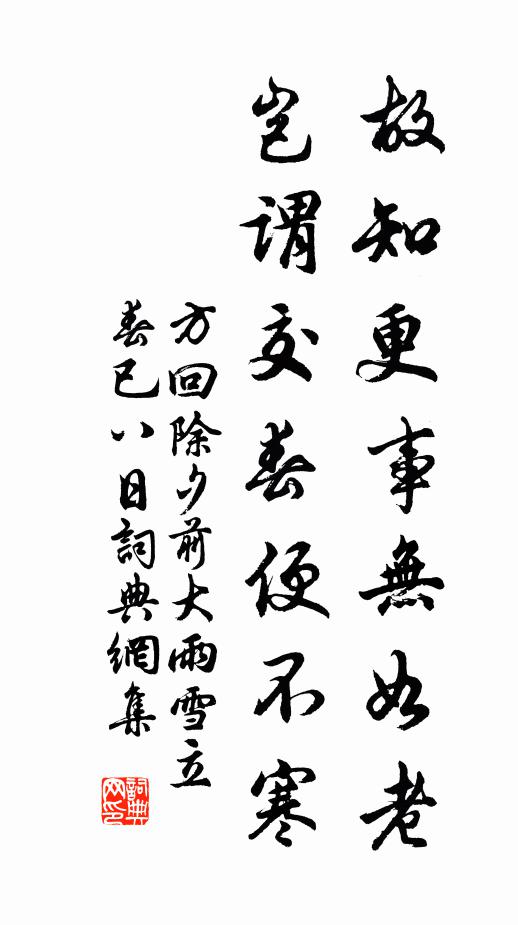 故知更事無如老
豈謂交春便不寒
方回除夕前大雨雪立
春已八日詞典網集
詞典
网印